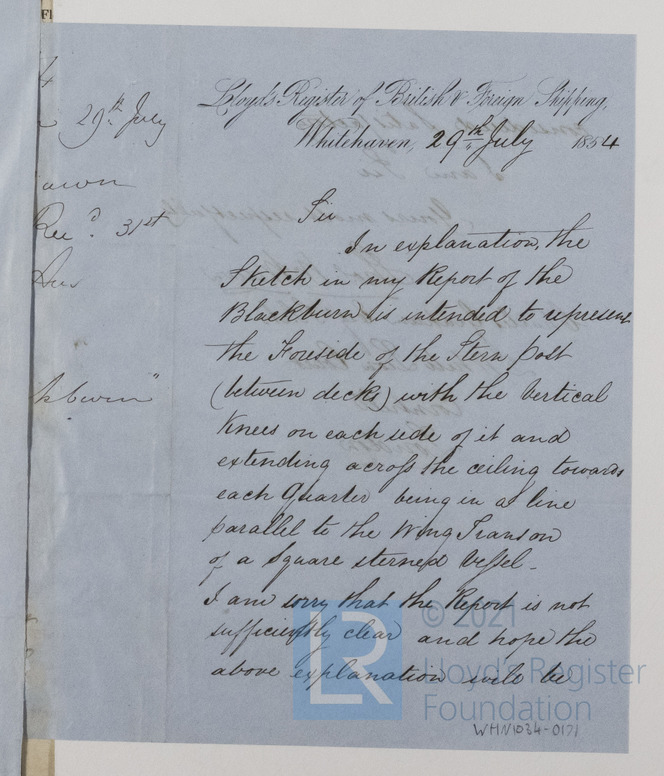 29th July
Rec.d 31st
Lloyd's Register of British & Foreign Shipping,
Whitehaven, 29th July 1854
Sir
In explanation, the
Sketch in my Report of the
Blackburn is intended to represent
the Foreside of the Stern post
(between decks) with the Vertical
Knees on each side of it and
extending across the ceiling towards
each Quarter being in a line
parallel to the Wing Transon
of a Square sterned Vessel.
I am sorry that the Report is not
sufficiently clear and hope the
above explanation will be
© 2021
LR
Lloyd's Register
Foundation
WHN1034-0171